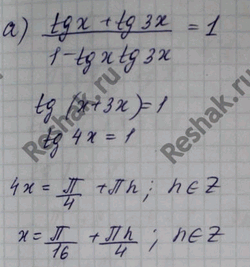 а) (tg x + tg 3x) / (1 - tg x tg 3x) = 1
tg (x+3x) = 1
tg 4x = 1
4x = π/4 + πn; n ∈ Z
x = π/16 + πn/4; n ∈ Z
Reshak.ru